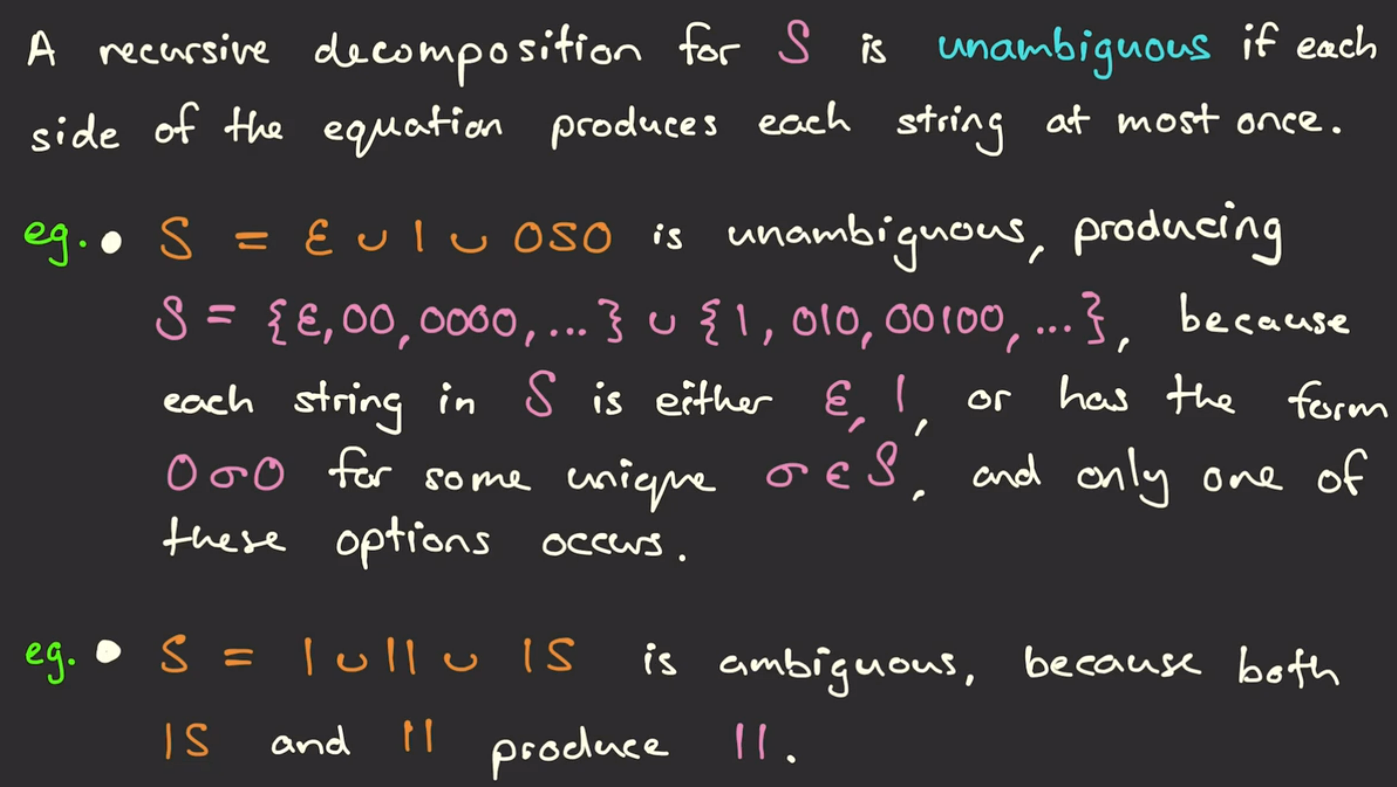 A recursive decomposition for S is unambiguous if each
side of the equation produces each string at most once.
eg. • S = ε ∪ 1 ∪ 0S0 is unambiguous, producing
S = {ε, 00, 0000, ...} ∪ {1, 010, 00100, ...}, because
each string in S is either ε, 1, or has the form
0σ0 for some unique σ ∈ S, and only one of
these options occurs.
eg. • S = 1 ∪ 11 ∪ 1S is ambiguous, because both
1S and 11 produce 11.